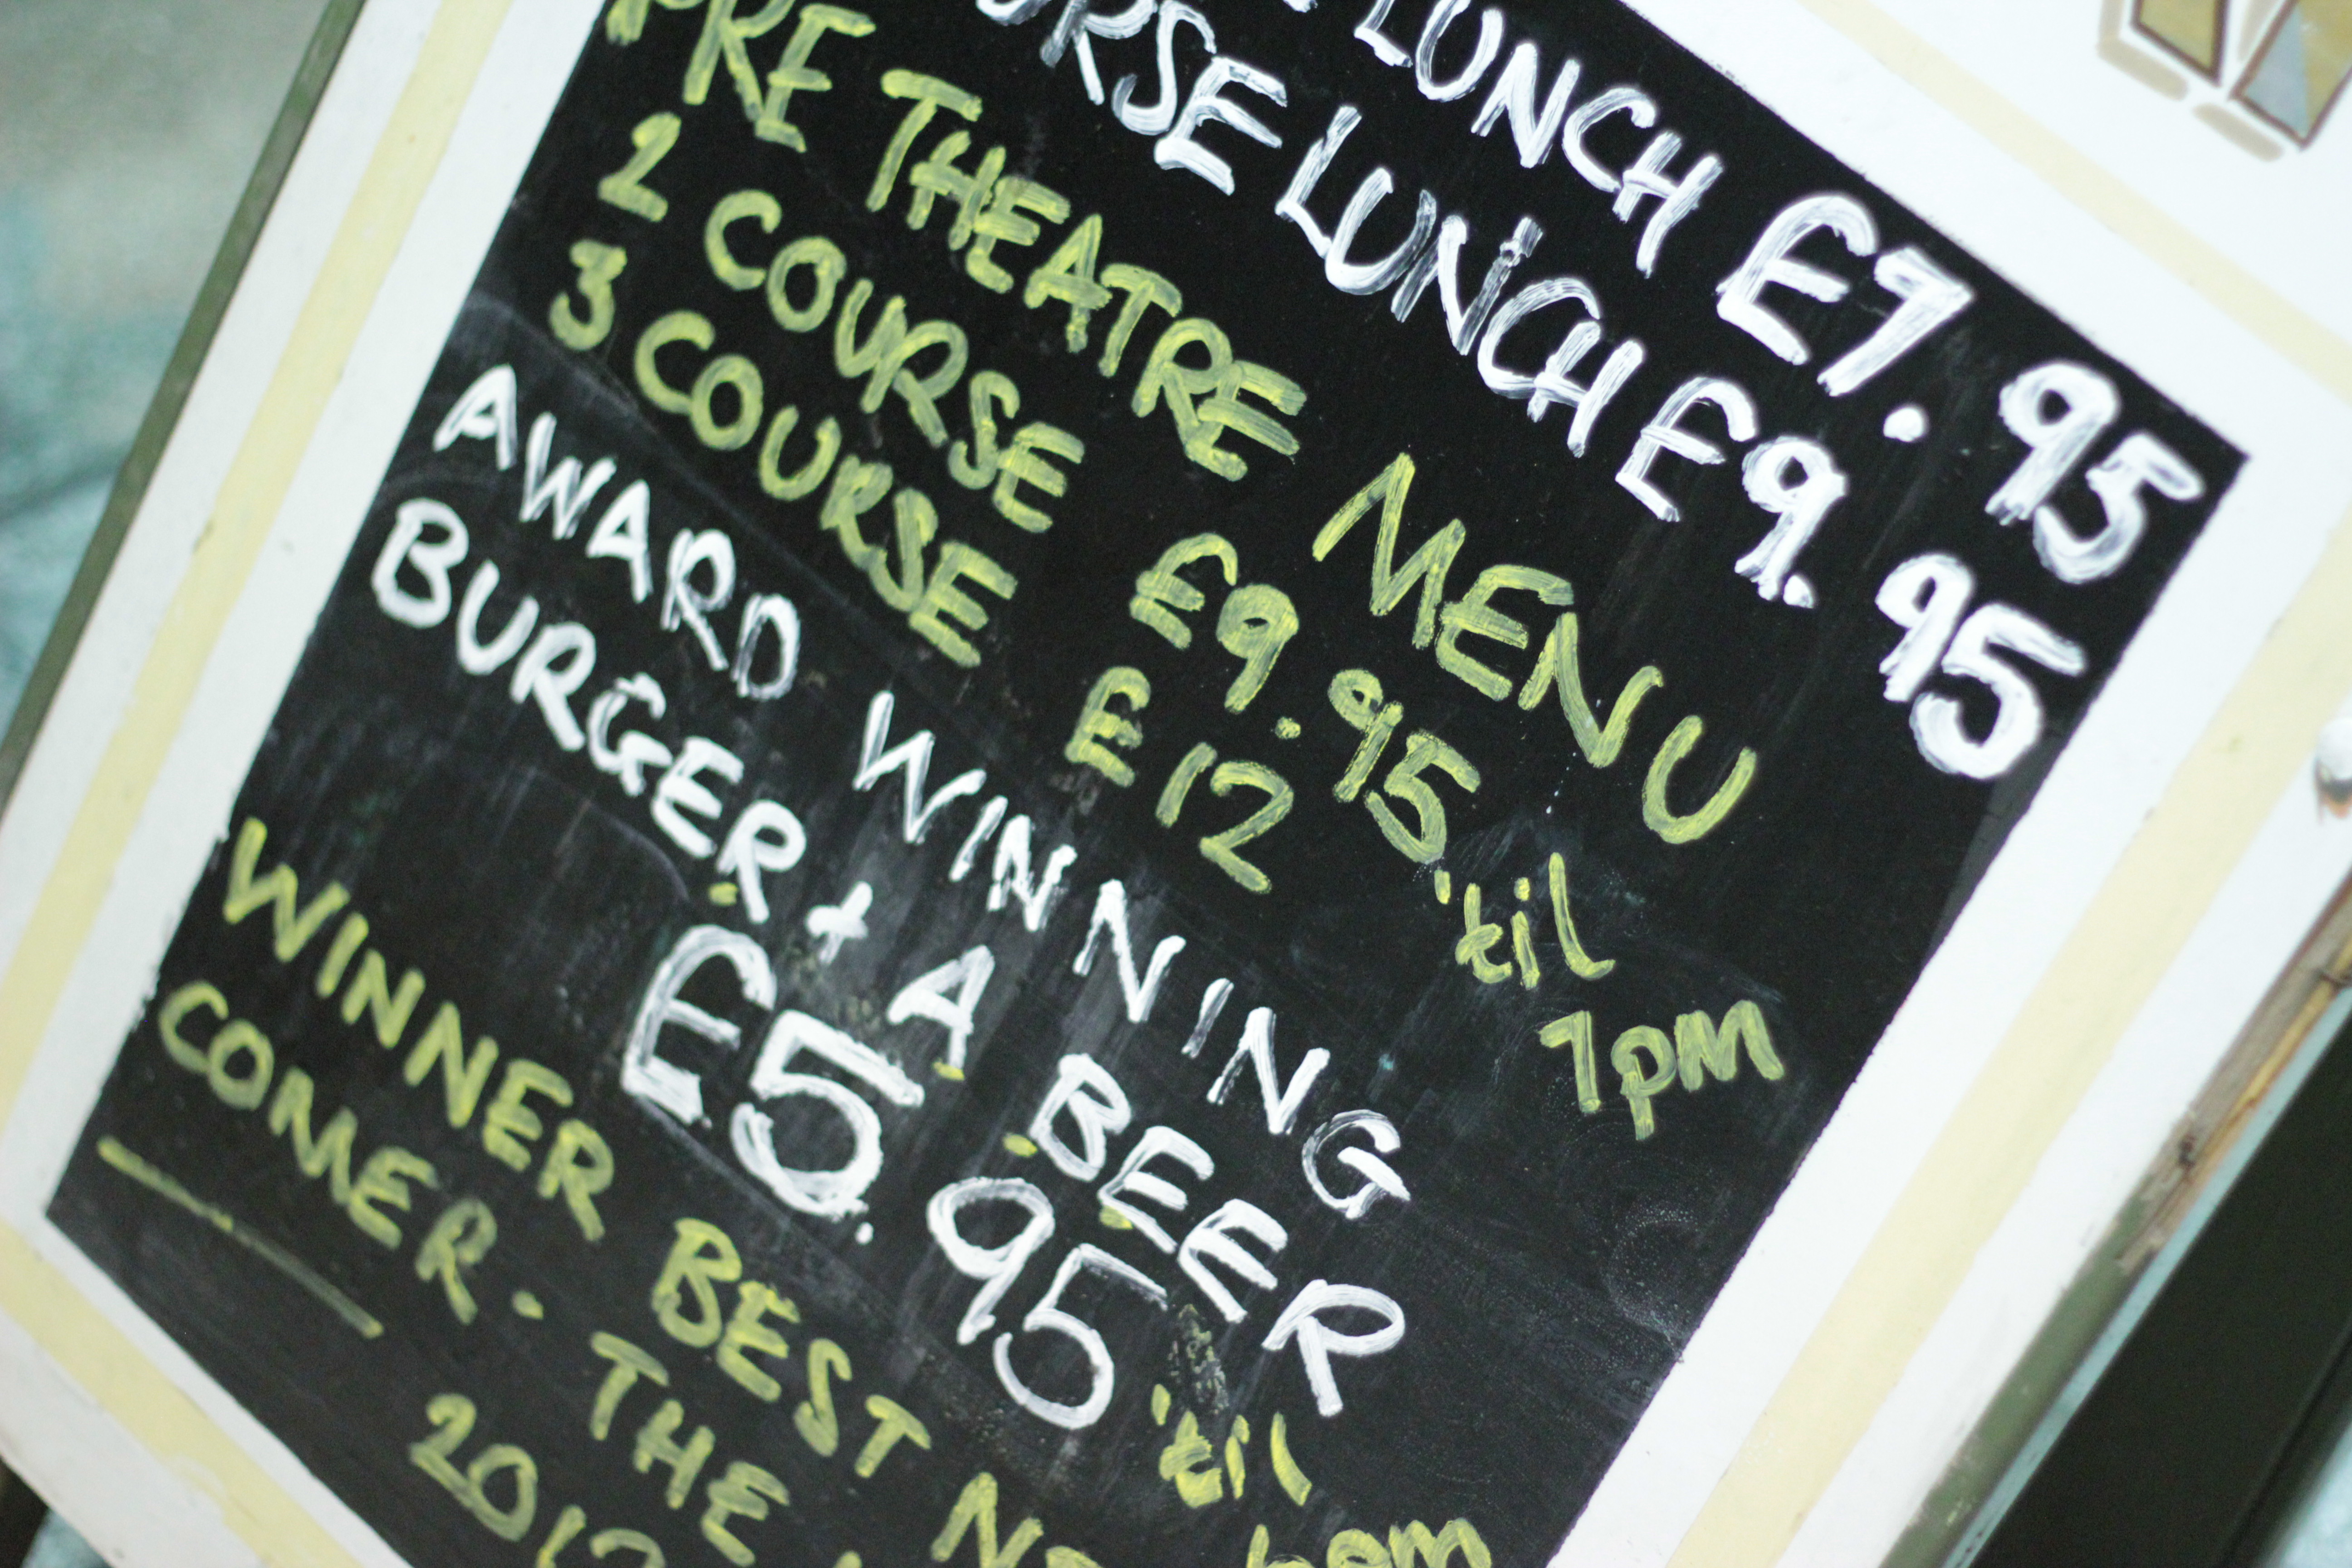 LUNCH £7.95
URSE LUNCH £9.95
PRE THEATRE MENU
2 COURSE £9.95 'til
3 COURSE £12 7PM
AWARD WINNING
BURGER + A BEER
£5.95 'til 6pm
WINNER BEST
COMER - THE
2012